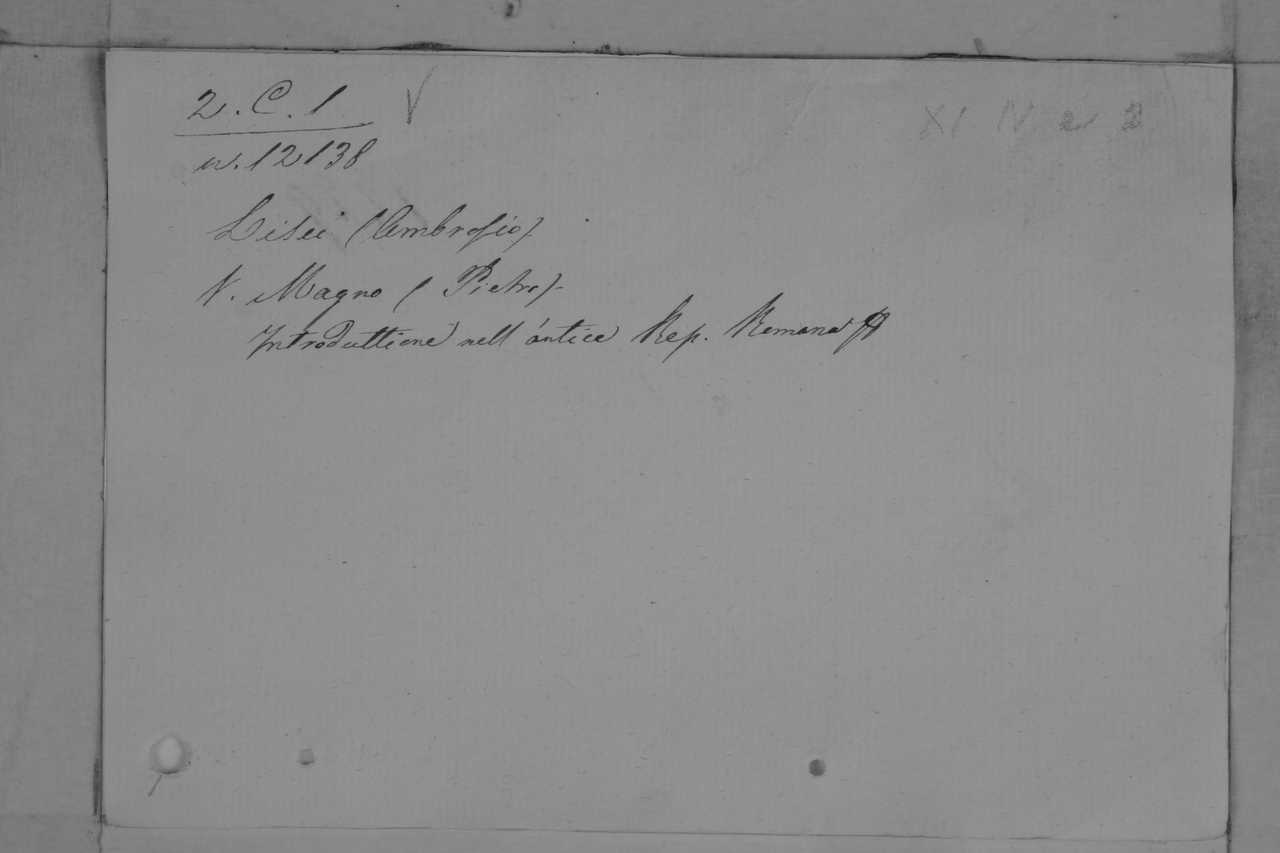 2. C. 1 V
n. 12138
XI IV 2
Lisei (Ambrosio)
V. Magno (Pietro)
Introduttione nell'antica Rep. Romana